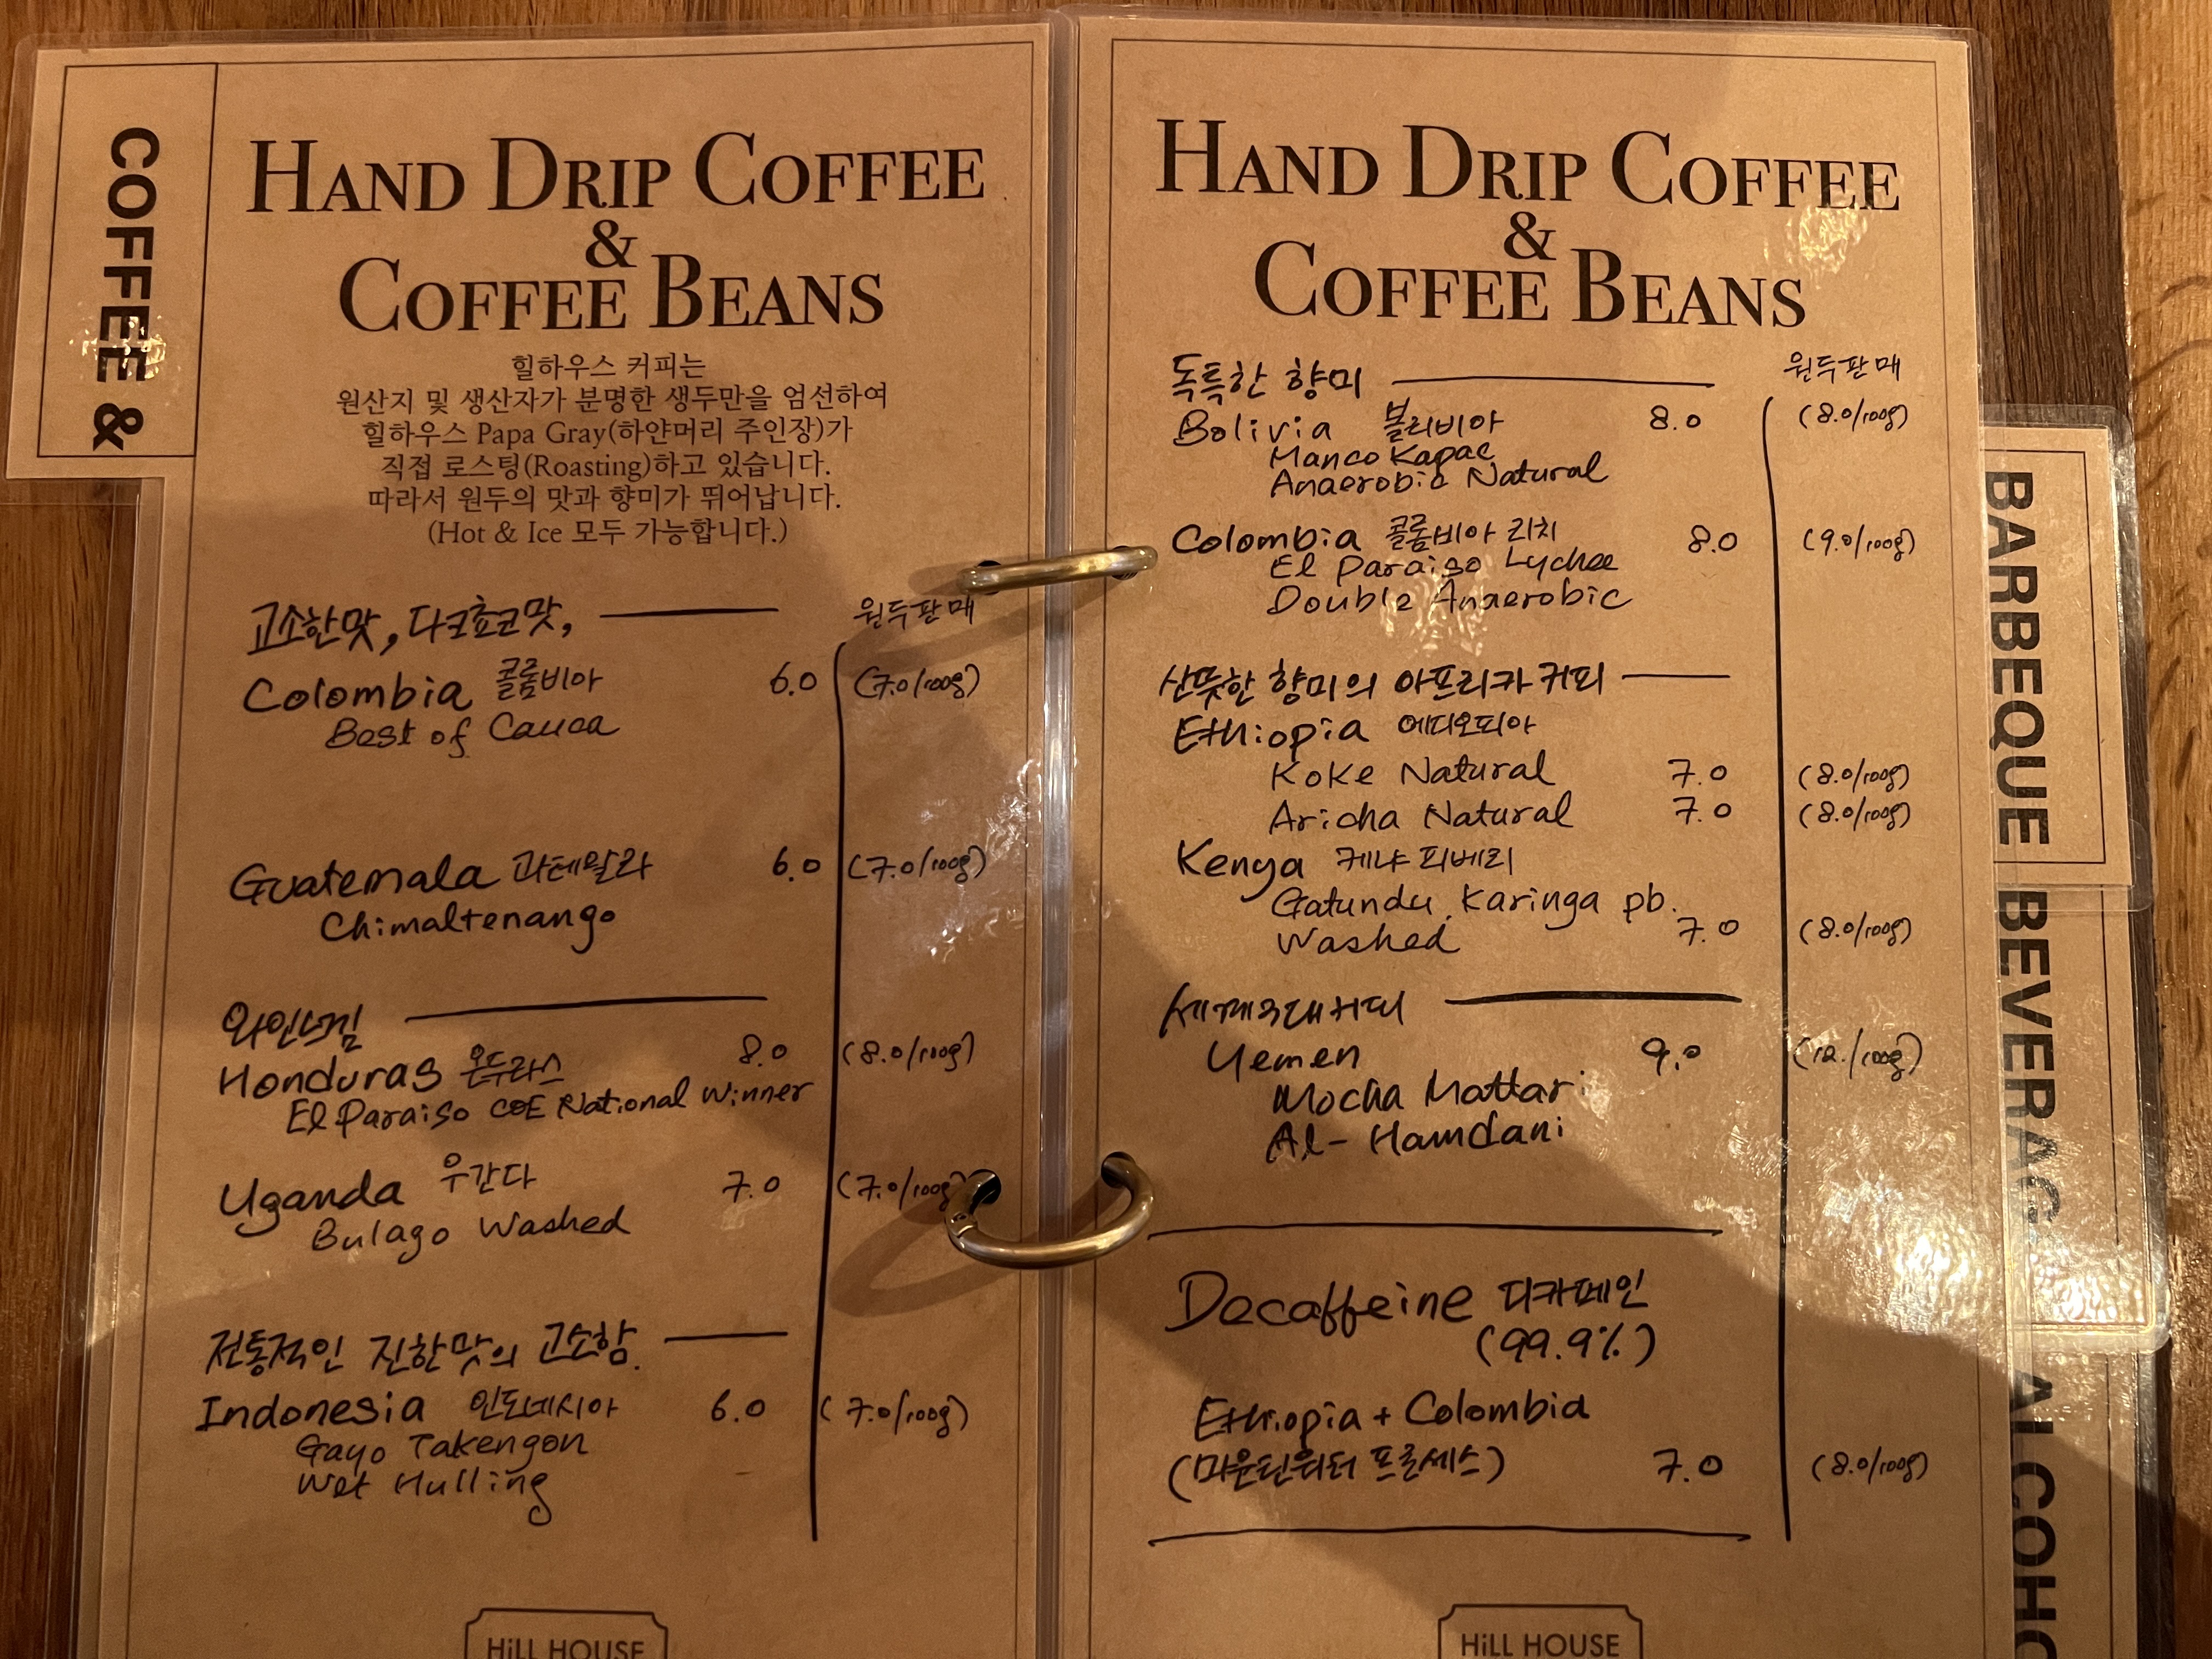 COFFEE &
HAND DRIP COFFEE
&
COFFEE BEANS
힐하우스 커피는
원산지 및 생산자가 분명한 생두만을 엄선하여
힐하우스 Papa Gray(하얀머리 주인장)가
직접 로스팅(Roasting)하고 있습니다.
따라서 원두의 맛과 향미가 뛰어납니다.
(Hot & Ice 모두 가능합니다.)
고소한맛, 다크쵸코맛,
원두판매
Colombia 콜롬비아 6.0 (7.0/100g)
Best of Cauca
Guatemala 과테말라 6.0 (7.0/100g)
Chimaltenango
와인느낌
Honduras 온두라스 8.0 (8.0/100g)
El Paraiso COE National Winner
Uganda 우간다 7.0 (7.0/100g)
Bulago Washed
전통적인 진한맛의 고소함.
Indonesia 인도네시아 6.0 (7.0/100g)
Gayo Takengon
Wet Hulling
HiLL HOUSE
HAND DRIP COFFEE
&
COFFEE BEANS
독특한 향미 원두판매
Bolivia 볼리비아 8.0 (8.0/100g)
Manco Kapac
Anaerobic Natural
Colombia 콜롬비아 리치 8.0 (9.0/100g)
El Paraiso Lychee
Double Anaerobic
산뜻한 향미의 아프리카 커피
Ethiopia 에디오피아
Koke Natural 7.0 (8.0/100g)
Aricha Natural 7.0 (8.0/100g)
Kenya 케냐 피베리
Gatundu Karinga pb.
Washed 7.0 (8.0/100g)
세계3대커피
Yemen 9.0 (12./100g)
Mocha Mattari
Al-Hamdani
Decaffeine 디카페인
(99.9%)
Ethiopia + Colombia
(마운틴워터 프로세스) 7.0 (8.0/100g)
HiLL HOUSE
BARBEQUE
BEVERAG
ALCOHO